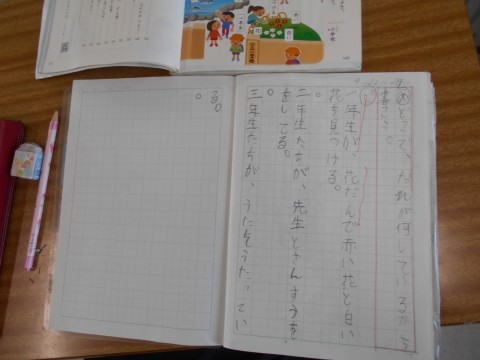 ㋱どこで、だれが何しているかを
書こう。
一年生が、花だんで赤い花と白い
花を見つける。
。
二年生たちが、先生とさんすうを、
をしてる。
。
三年生たちが、うたをうたってい
る。
。
小学校